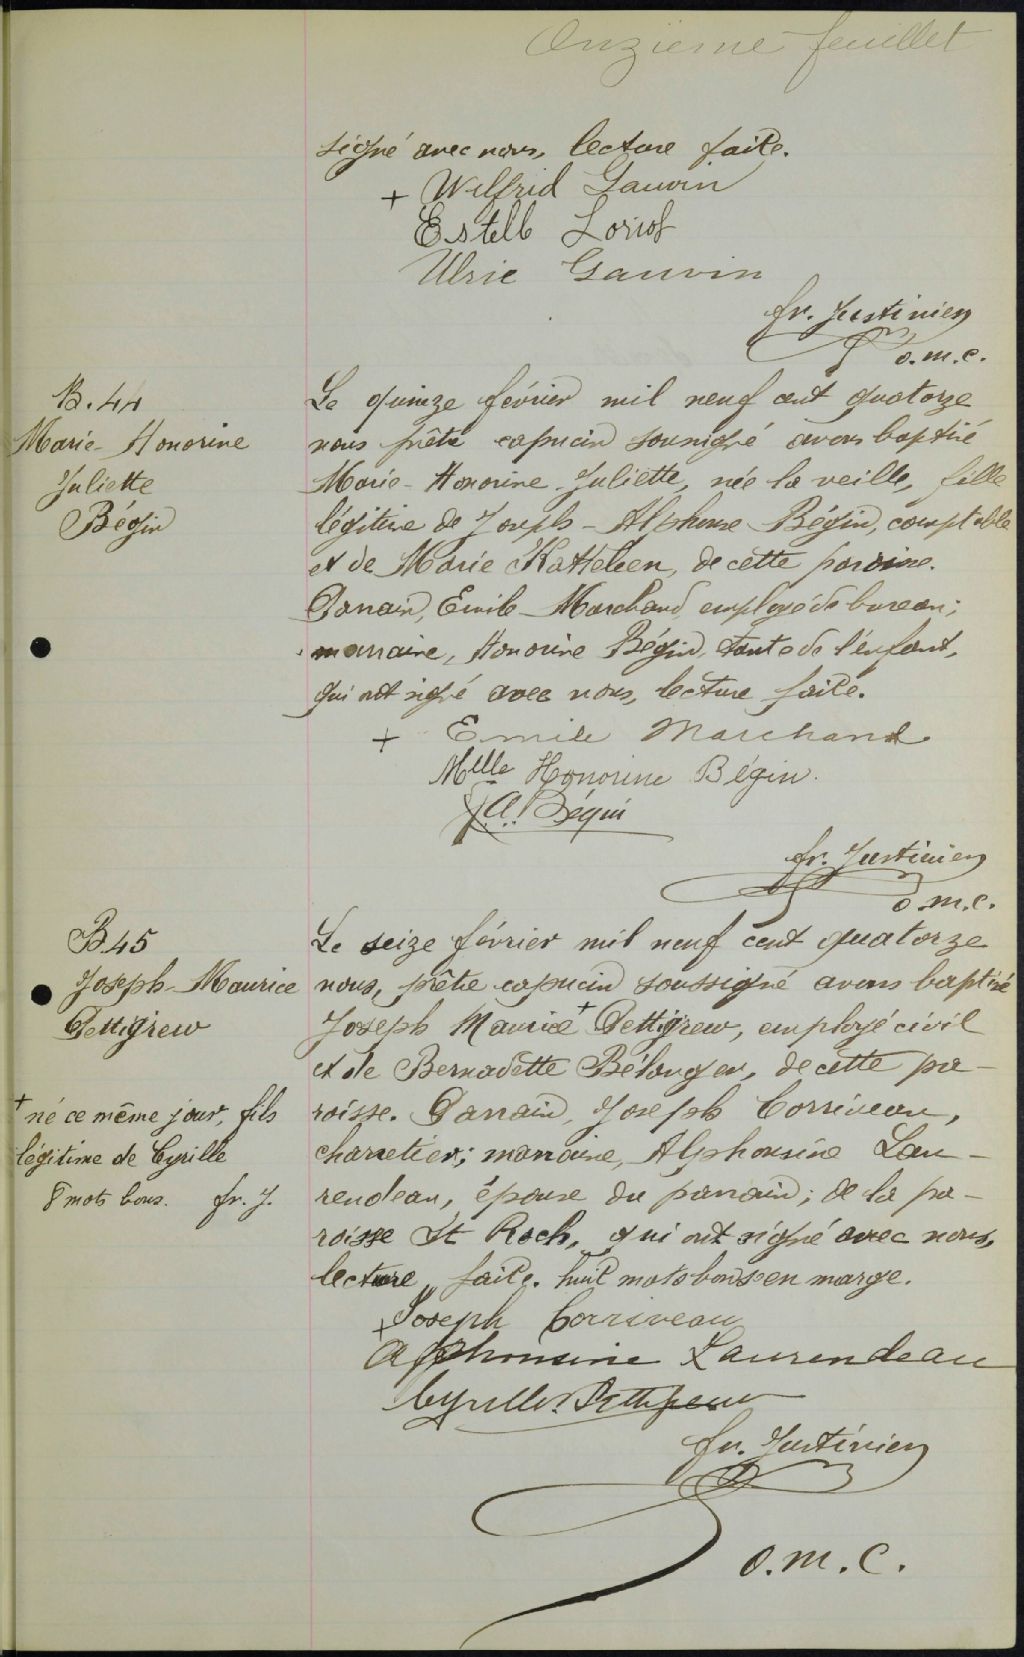 Onzième feuillet
signé avec nous, lecture faite.
+ Wilfrid Gauvin
Estelle Loriot
Ulric Gauvin
fr. Justinien
o.m.c.
B. 44
Marie-Honorine
Juliette
Bégin
Le quinze février mil neuf cent quatorze
nous prêtre capucin soussigné avons baptisé
Marie-Honorine-Juliette, née la veille, fille
légitime de Joseph-Alphonse Bégin, comptable
et de Marie, de cette paroisse.
Parrain, Emile Marchand, employé de bureau;
marraine, Honorine Bégin, tante de l'enfant,
qui ont signé avec nous, lecture faite.
+ Emile Marchand
Melle Honorine Bégin.
J.A. Bégin
fr. Justinien
o.m.c.
B.45
Joseph-Maurice
Pettigrew
+ né ce même jour, fils
légitime de Cyrille
8 mots bons. fr. J.
Le seize février mil neuf cent quatorze
nous, prêtre capucin soussigné avons baptisé
Joseph Maurice + Pettigrew, employé civil
et de Bernadette Bélanger, de cette pa-
roisse. Parrain, Joseph Corriveau,
charretier; marraine, Alphonsine Lau-
rendeau, épouse du parrain; de la pa-
roisse St Roch, qui ont signé avec nous,
lecture faite. huit mots bons en marge.
+ Joseph Corriveau
Alphonsine Laurendeau
Cyrille Pettigrew
fr. Justinien
o.m.c.